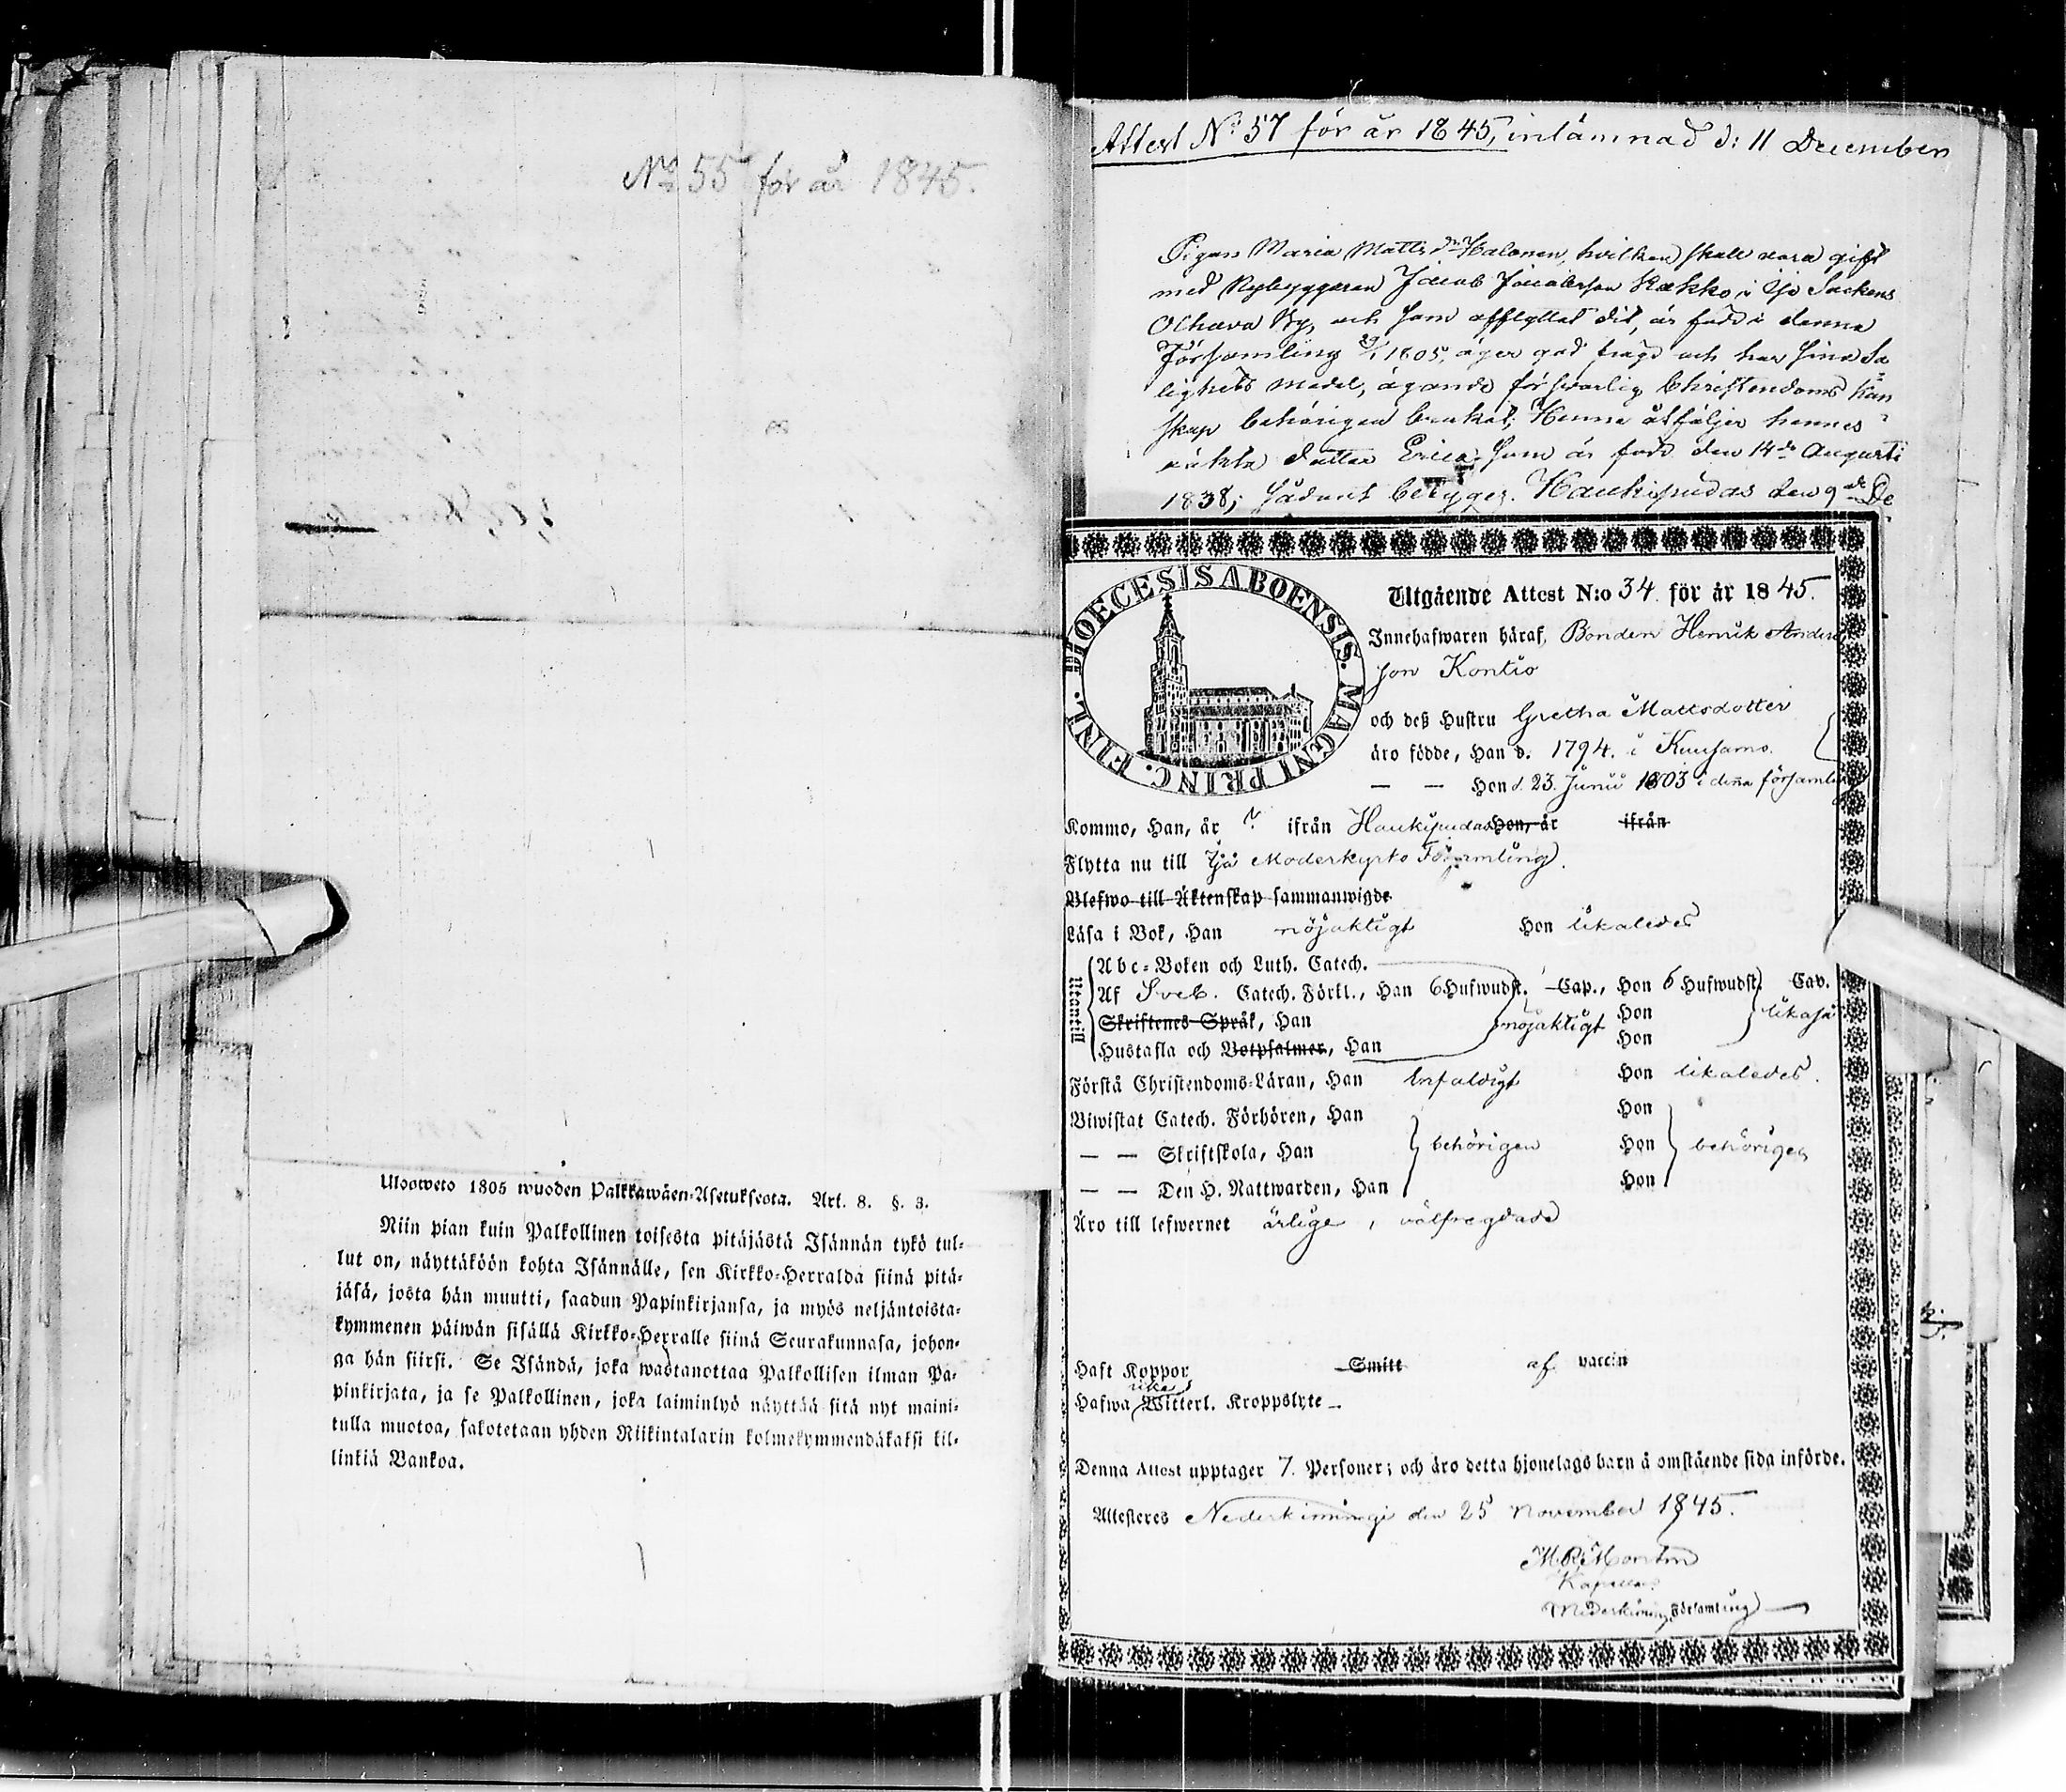 No 55 för år 1845.
Ulosweto 1805 wuoden Palkkawäen-Asetuksesta. Art. 8. §. 3.
Niin pian kuin Palkollinen toisesta pitäjästä Isännän tykö tul-
lut on, näyttäköön kohta Isännälle, sen Kirkko-Herralda siinä pitä-
jäsä, josta hän muutti, saadun Papinkirjansa, ja myös neljäntoista-
kymmenen päiwän sisällä Kirkko-Herralle siinä Seurakunnasa, johon-
ga hän siirsi. Se Isändä, joka wastanottaa Palkollisen ilman Pa-
pinkirjata, ja se Palkollinen, joka laiminlyö näyttää sitä nyt maini-
tulla muotoa, sakotetaan yhden Riikintalarin kolmekymmendäkaksi kil-
linkiä Bankoa.
Attest No 57 för år 1845, inlämnad d: 11 December
Pigan Maria Mattsdr Halonen, hvilken skall vara gift
med Nybyggaren Jacob Jacobsson Kakko, i Ijo Sockens
Olhava By, och som afflyttat dit, är född i denna
Församling 29/1 1805, äger god frägd och har sina Sa
lighets medel, ägande försvarlig Christendoms Kän
skap behörigen brukat; Henne åtföljer hennes
oäkta dotter Erica, som är född den 14de Augusti
1838; sådant betygger. Haukipudas den 9de De
DIOECESIS ABOENSIS. MAGNI PRINC. FINL.
Utgående Attest N:o 34. för år 1845.
Innehafwaren häraf, Bonden Henrik Anders
son Kontio
och deß Hustru Gretha Mattsdotter
äro födde, Han d. 1794. i Kuusamo.
— — Hon d. 23. Junii 1803 i denna församling
Kommo, Han, år ? ifrån Haukipudas Hon, år ifrån
Flytta nu till Ijå Moderkyrko Församling.
Blefwo till Äktenskap sammanwigde
Läsa i Bok, Han nöjaktigt Hon likaledes
Utentill
Abc-Boken och Luth. Catech.
Af Sveb. Catech. Förkl., Han 6 Hufwudst. Cap., Hon 6 Hufwudst. Cap.
Skriftenes Språk, Han nöjaktigt Hon likaså
Hustafla och Botpsalmer, Han Hon
Förstå Christendoms-Läran, Han Enfaldigt Hon likaledes.
Biwistat Catech. Förhören, Han Hon
— — Skriftskola, Han behörigen Hon behörigen
— — Den H. Nattwarden, Han Hon
Äro till lefwernet ärlige, välfrägdade
Haft Koppor Smitt af vaccin
Hafwa Witterl. Kroppslyte
Denna Attest upptager 7. Personer; och äro detta hjonelags barn å omstående sida införde.
Attesteres Nederkimingi den 25 November 1845.
Kapellan
Nederkiming Församling